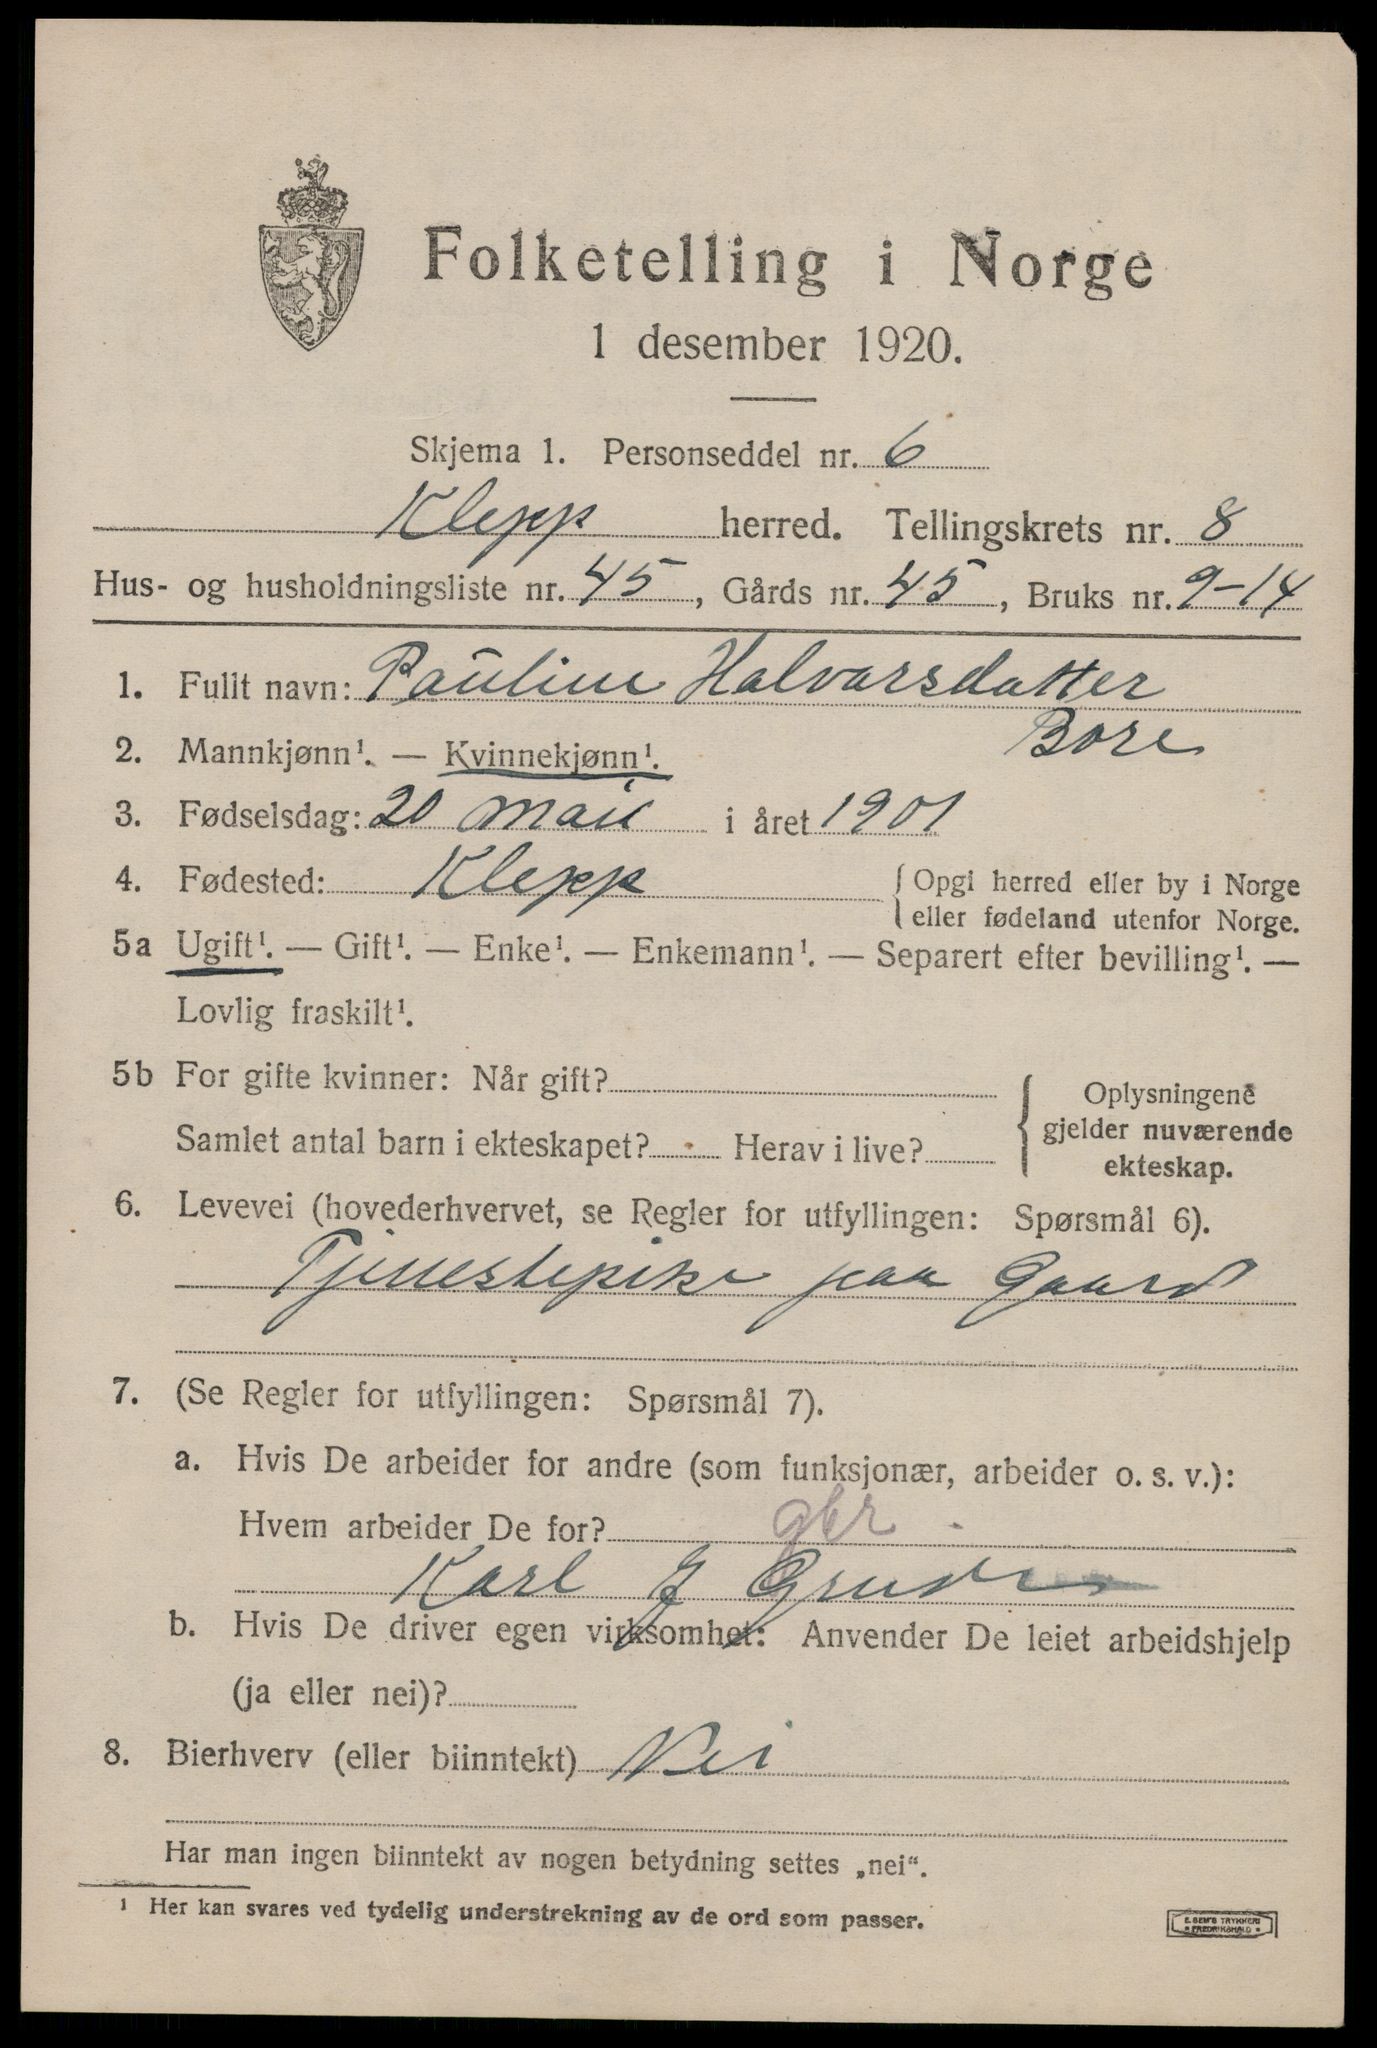 Folketelling i Norge
1 desember 1920.
Skjema 1. Personseddel nr. 6
Klepp herred. Tellingskrets nr. 8
Hus- og husholdningsliste nr. 45, Gårds nr. 45, Bruks nr. 9-14
1. Fullt navn: Pauline Halvarsdatter
Bore
2. Mannkjønn¹. — Kvinnekjønn¹.
3. Fødselsdag: 20 mai i året 1901
4. Fødested: Klepp { Opgi herred eller by i Norge
eller fødeland utenfor Norge.
5a Ugift¹. — Gift¹. — Enke¹. — Enkemann¹. — Separert efter bevilling¹. —
Lovlig fraskilt¹.
5b For gifte kvinner: Når gift?
Samlet antal barn i ekteskapet? Herav i live?
{ Oplysningene
gjelder nuværende
ekteskap.
6. Levevei (hovederhvervet, se Regler for utfyllingen: Spørsmål 6).
Tjenestepike paa Gaard
7. (Se Regler for utfyllingen: Spørsmål 7).
a. Hvis De arbeider for andre (som funksjonær, arbeider o. s. v.):
Hvem arbeider De for? gbr.
Karl J Grude
b. Hvis De driver egen virksomhet: Anvender De leiet arbeidshjelp
(ja eller nei)?
8. Bierhverv (eller biinntekt) Nei
Har man ingen biinntekt av nogen betydning settes „nei“.
¹ Her kan svares ved tydelig understrekning av de ord som passer.
E. SEM'S TRYKKERI
FREDRIKSHALD